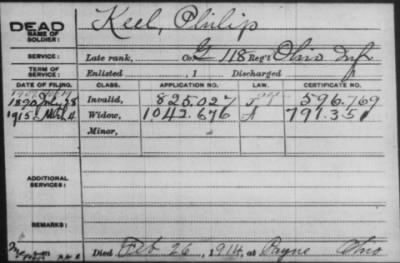 DEAD Keel, Philip
NAME OF SOLDIER:
SERVICE: Late rank, Co. G 118 Reg't Ohio Inf
TERM OF SERVICE: Enlisted , 1 Discharged , 1
DATE OF FILING. CLASS. APPLICATION NO. LAW. CERTIFICATE NO.
1890 Invalid, 825.027 596.769
1915 Widow, 1042.676 A 791.351
Minor,
ADDITIONAL SERVICES:
REMARKS:
Died Feb 26, 1914, at Payne Ohio